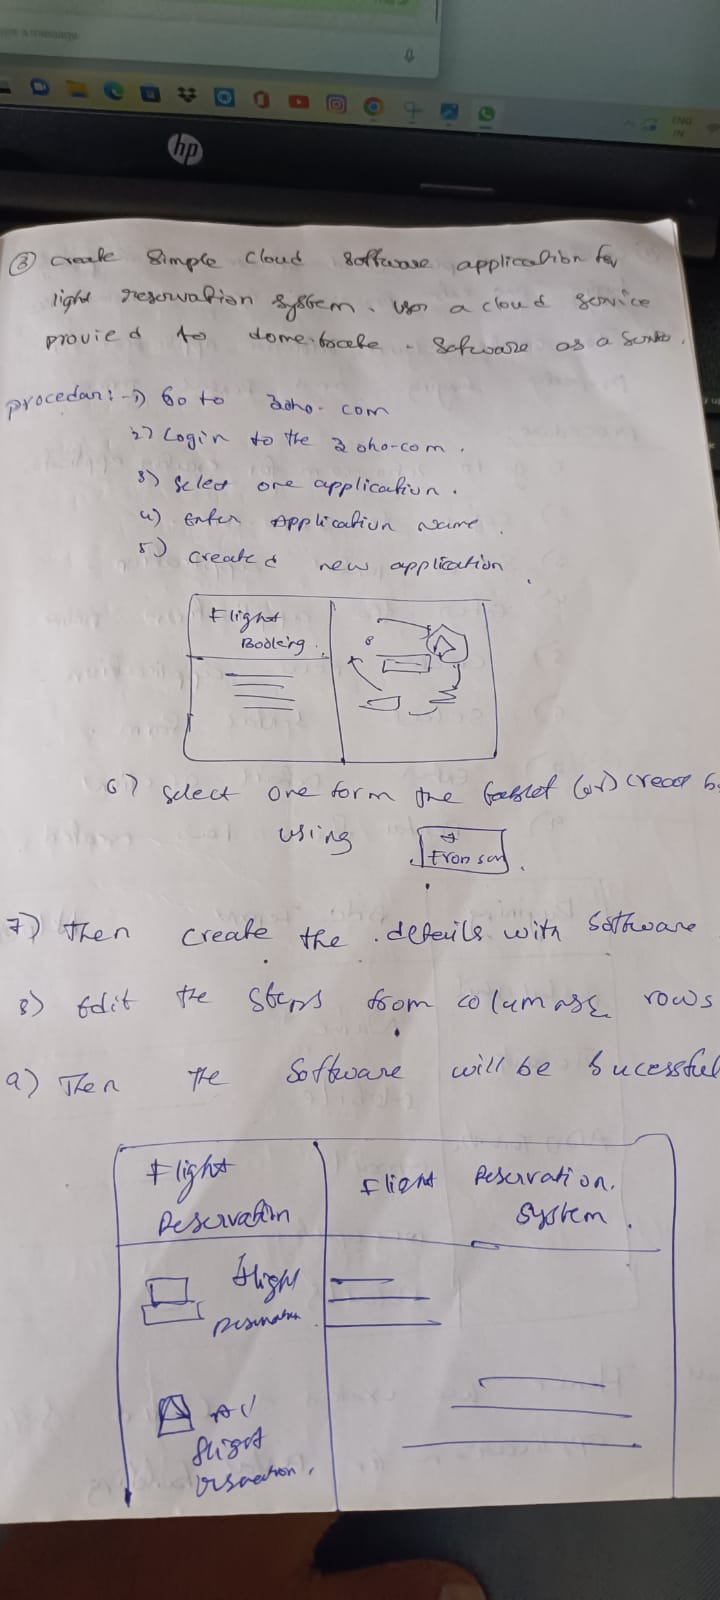 a message
ENG
IN
hp
③ create Simple cloud software application for
light reservation system. User a cloud service
provied to - software as a
procedar:- 1) Go to zoho.com
2) Login to the zoho.com.
3) Select one application.
4) Enter Application Name.
5) Created new application.
Flight
Booking.
6) Select one form the (or) creat
using
7) Then create the details with software
8) Edit the steps from rows
9) Then the software will be sucessful
Flight
Reservation
Flight Reservation.
System.
flight
All
flight